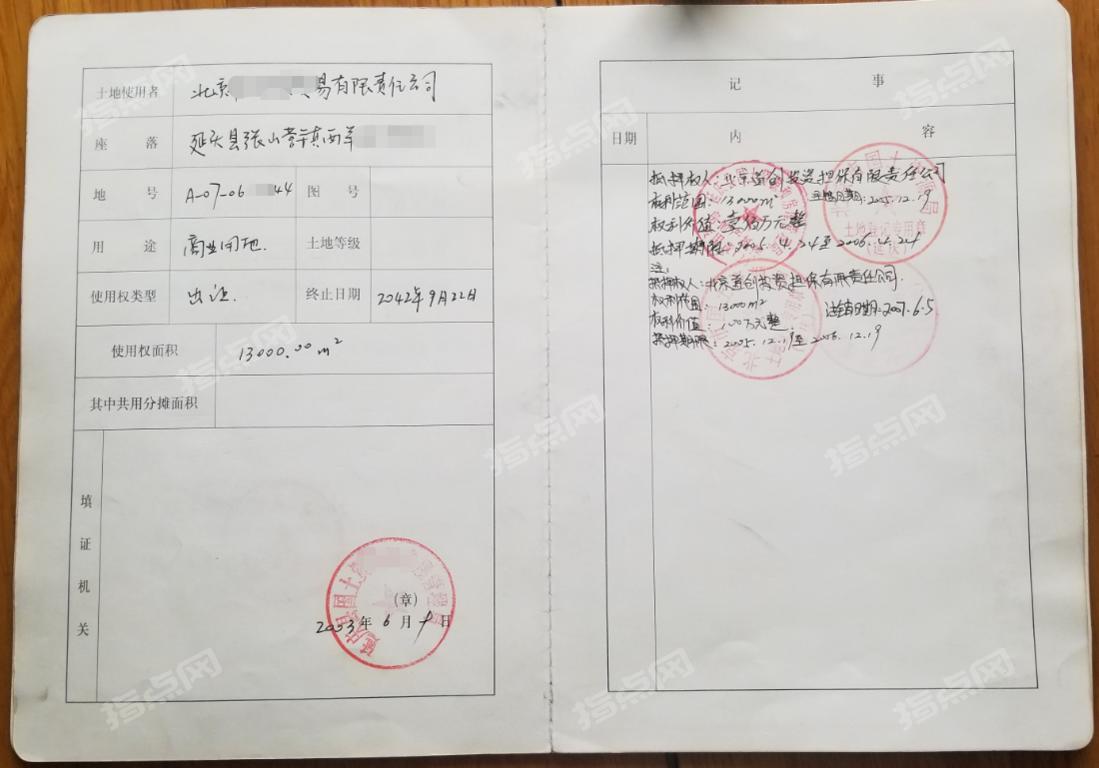 土地使用者 北京 易有限责任公司
座 落 延庆县张山营镇西羊
地 号 A-07-06 44 图 号
用 途 商业用地. 土地等级
使用权类型 出让. 终止日期 2042年9月22日
使用权面积 13000.00 m²
其中共用分摊面积
填证机关
延庆县国土 管理局
(章)
2003年6月9日
记 事
日期 内 容
抵押权人:北京首创投资担保有限责任公司
权利范围:13000m² 注销日期:2005.12.19
权利价值:壹佰万元整
抵押期限:2005.4.24至2006.4.24
注:
抵押权人:北京首创投资担保有限责任公司.
权利范围:13000m² 注销日期:2007.6.5
权利价值:100万元整.
抵押期限:2005.12.19至2006.12.19
土地登记专用章
指点网